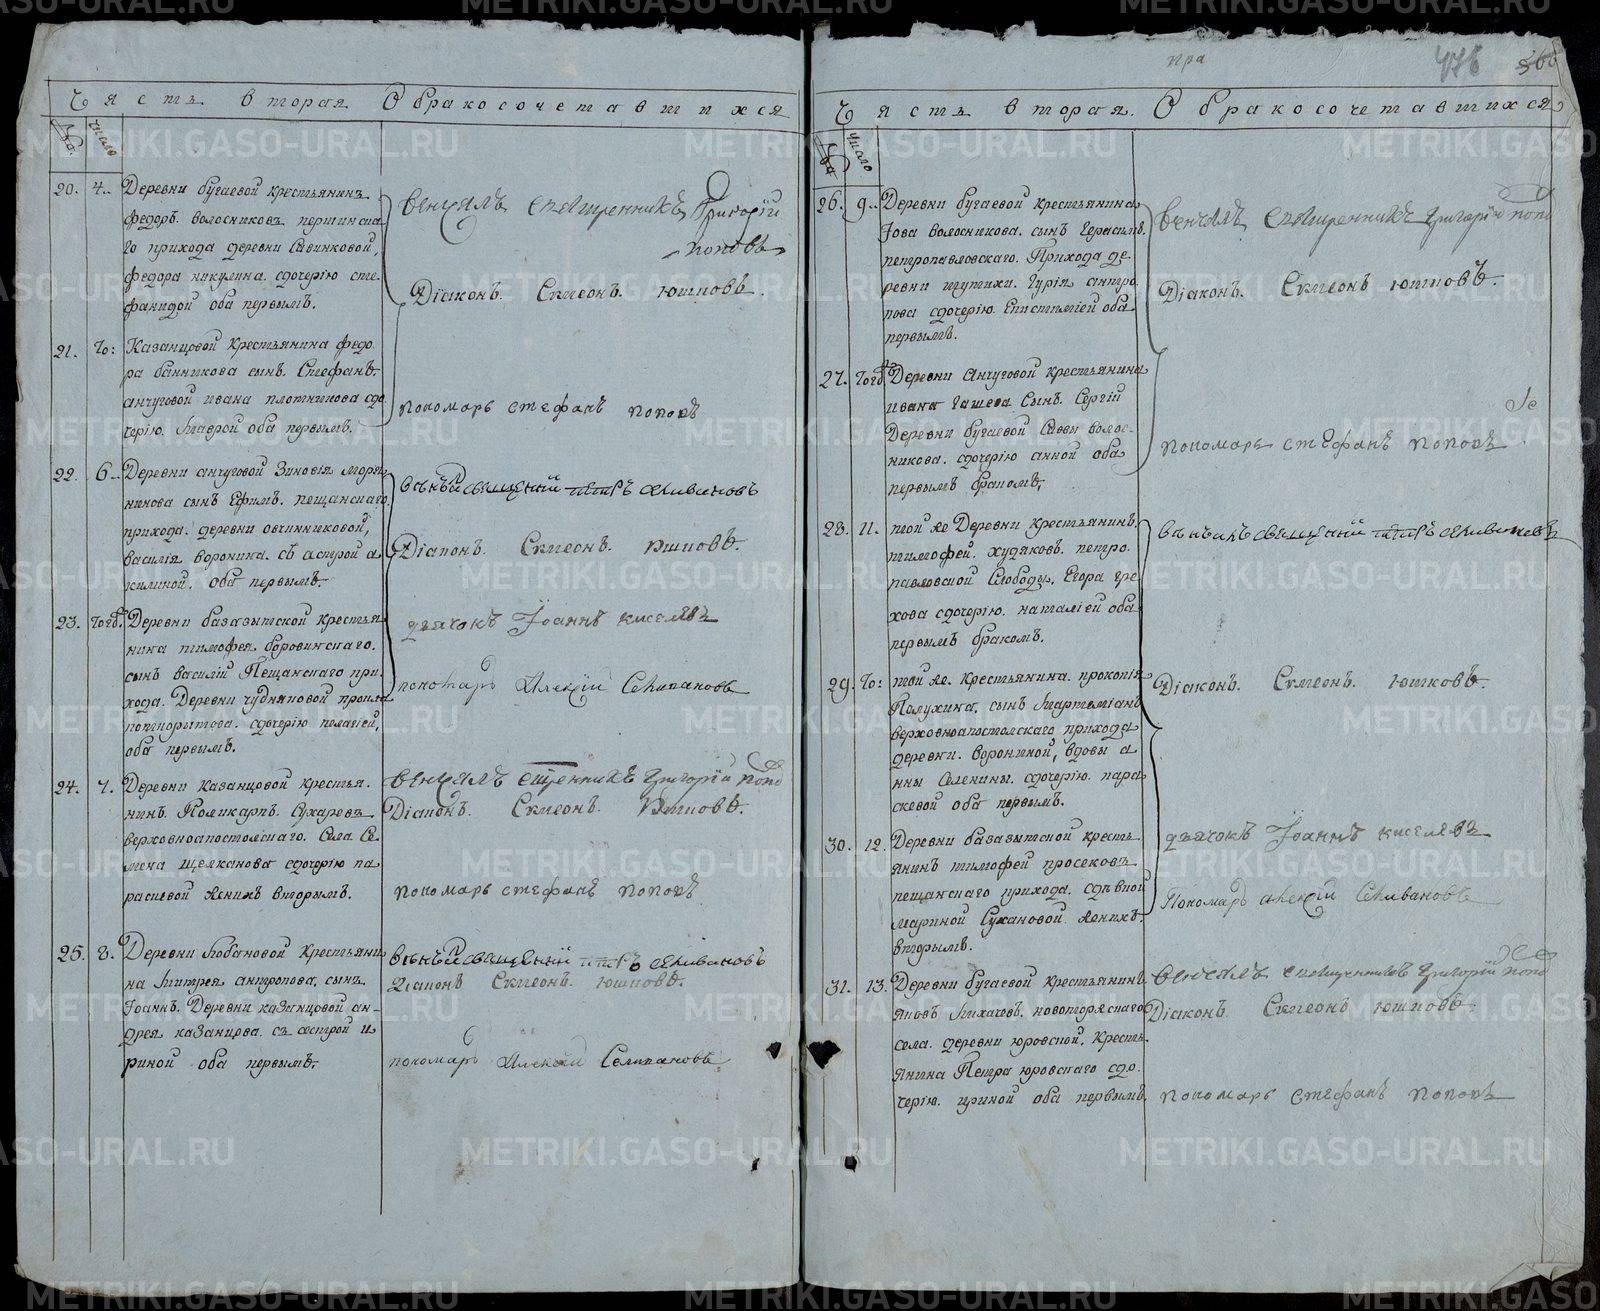 Часть вторая О бракосочетавшихся
№ число
20. 4. Деревни бугаевой крестьянинъ
федоръ волосниковъ першинска
го прихода деревни Савинковой,
федора никулина сдочерїю сте
фанидой оба первымъ.
венчалъ священникъ Григорїй
поповъ
Дїаконъ Сѵмеонъ Юшковъ.
21. То: Казанцовой крестьянина федо
ра банникова сынъ Стефанъ
анчуговой ивана плотникова сдо
черїю Маврой оба первымъ.
пономарь стефанъ поповъ
22. 6. Деревни анчуговой Зиновїя
сынъ Ефимъ пещанскаго
прихода деревни овчинниковой,
василїя воронина съ сестрой а
килиной оба первымъ.
селивановъ
Дїаконъ Сѵмеонъ Юшковъ.
23. Тогож Деревни базазытской крестья
нина тимофея боровинскаго
сынъ василїй Пещанскаго при
хода Деревни чудняковой
сдочерїю пелагїей,
оба первымъ.
дьячокъ Їоаннъ киселевъ
пономарь Алексїй Селивановъ
24. 7. Деревни казанцовой крестья
нинъ Поликарпъ Сухаревъ
верховноапостолскаго Села Се
мена щелканова сдочерїю па
расковой женихъ вторымъ.
венчалъ священникъ григорїй попо
Дїаконъ Сѵмеонъ Юшковъ.
пономарь стефанъ поповъ
25. 8. Деревни Лобановой крестьяни
на Митрея антропова сынъ
Їоаннъ Деревни казанцовой ан-
дрея казанцова съ сестрой и
риной оба первымъ.
селивановъ
Дїаконъ Сѵмеонъ Юшковъ.
пономарь Алексїй Селивановъ
пра
476
366
Часть вторая О бракосочетавшихся
№ число
26. 9. Деревни бугаевой крестьянина
Їова волосникова сынъ Герасимъ
петропавловскаго Прихода де
ревни Гурїя антро
пова сдочерїю Епистимїей оба
первымъ.
венчалъ священникъ григорїй попо
Дїаконъ Сѵмеонъ Юшковъ.
27. Тогож Деревни Анчуговой крестьянина
ивана гашева Сынъ Сергїй
Деревни бугаевой Савы волос-
никова сдочерїю анной оба
первымъ бракомъ,
пономарь стефанъ поповъ
28. 11. той же Деревни крестьянинъ
тимофей худяковъ петро
павловской Слободы Егора гре
хова сдочерїю наталїей оба
первымъ бракомъ.
селивановъ
29. То: той же крестьянина прокопїя
Полухина сынъ Мартемїанъ
верховноапостолскаго прихода
деревни ворониной, вдовы а
нны Селенины сдочерїю пара
скевой оба первымъ.
Дїаконъ Сѵмеонъ Юшковъ.
30. 12. Деревни базазытской кресть
янинъ тимофей просековъ
пещанскаго прихода сдѣвкой
Мариной Сухановой женихъ
вторымъ.
дьячокъ Їоаннъ киселевъ
Пономарь алексїй Селивановъ
31. 13. Деревни бугаевой крестьянинъ
яковъ Лихачевъ новоторжскаго
села деревни юровской, кресть
янина Петра юровскаго сдо
черїю ириной оба первымъ
венчалъ священникъ григорїй попо
Дїаконъ Сѵмеонъ Юшковъ
пономарь стефанъ поповъ
METRIKI.GASO-URAL.RU